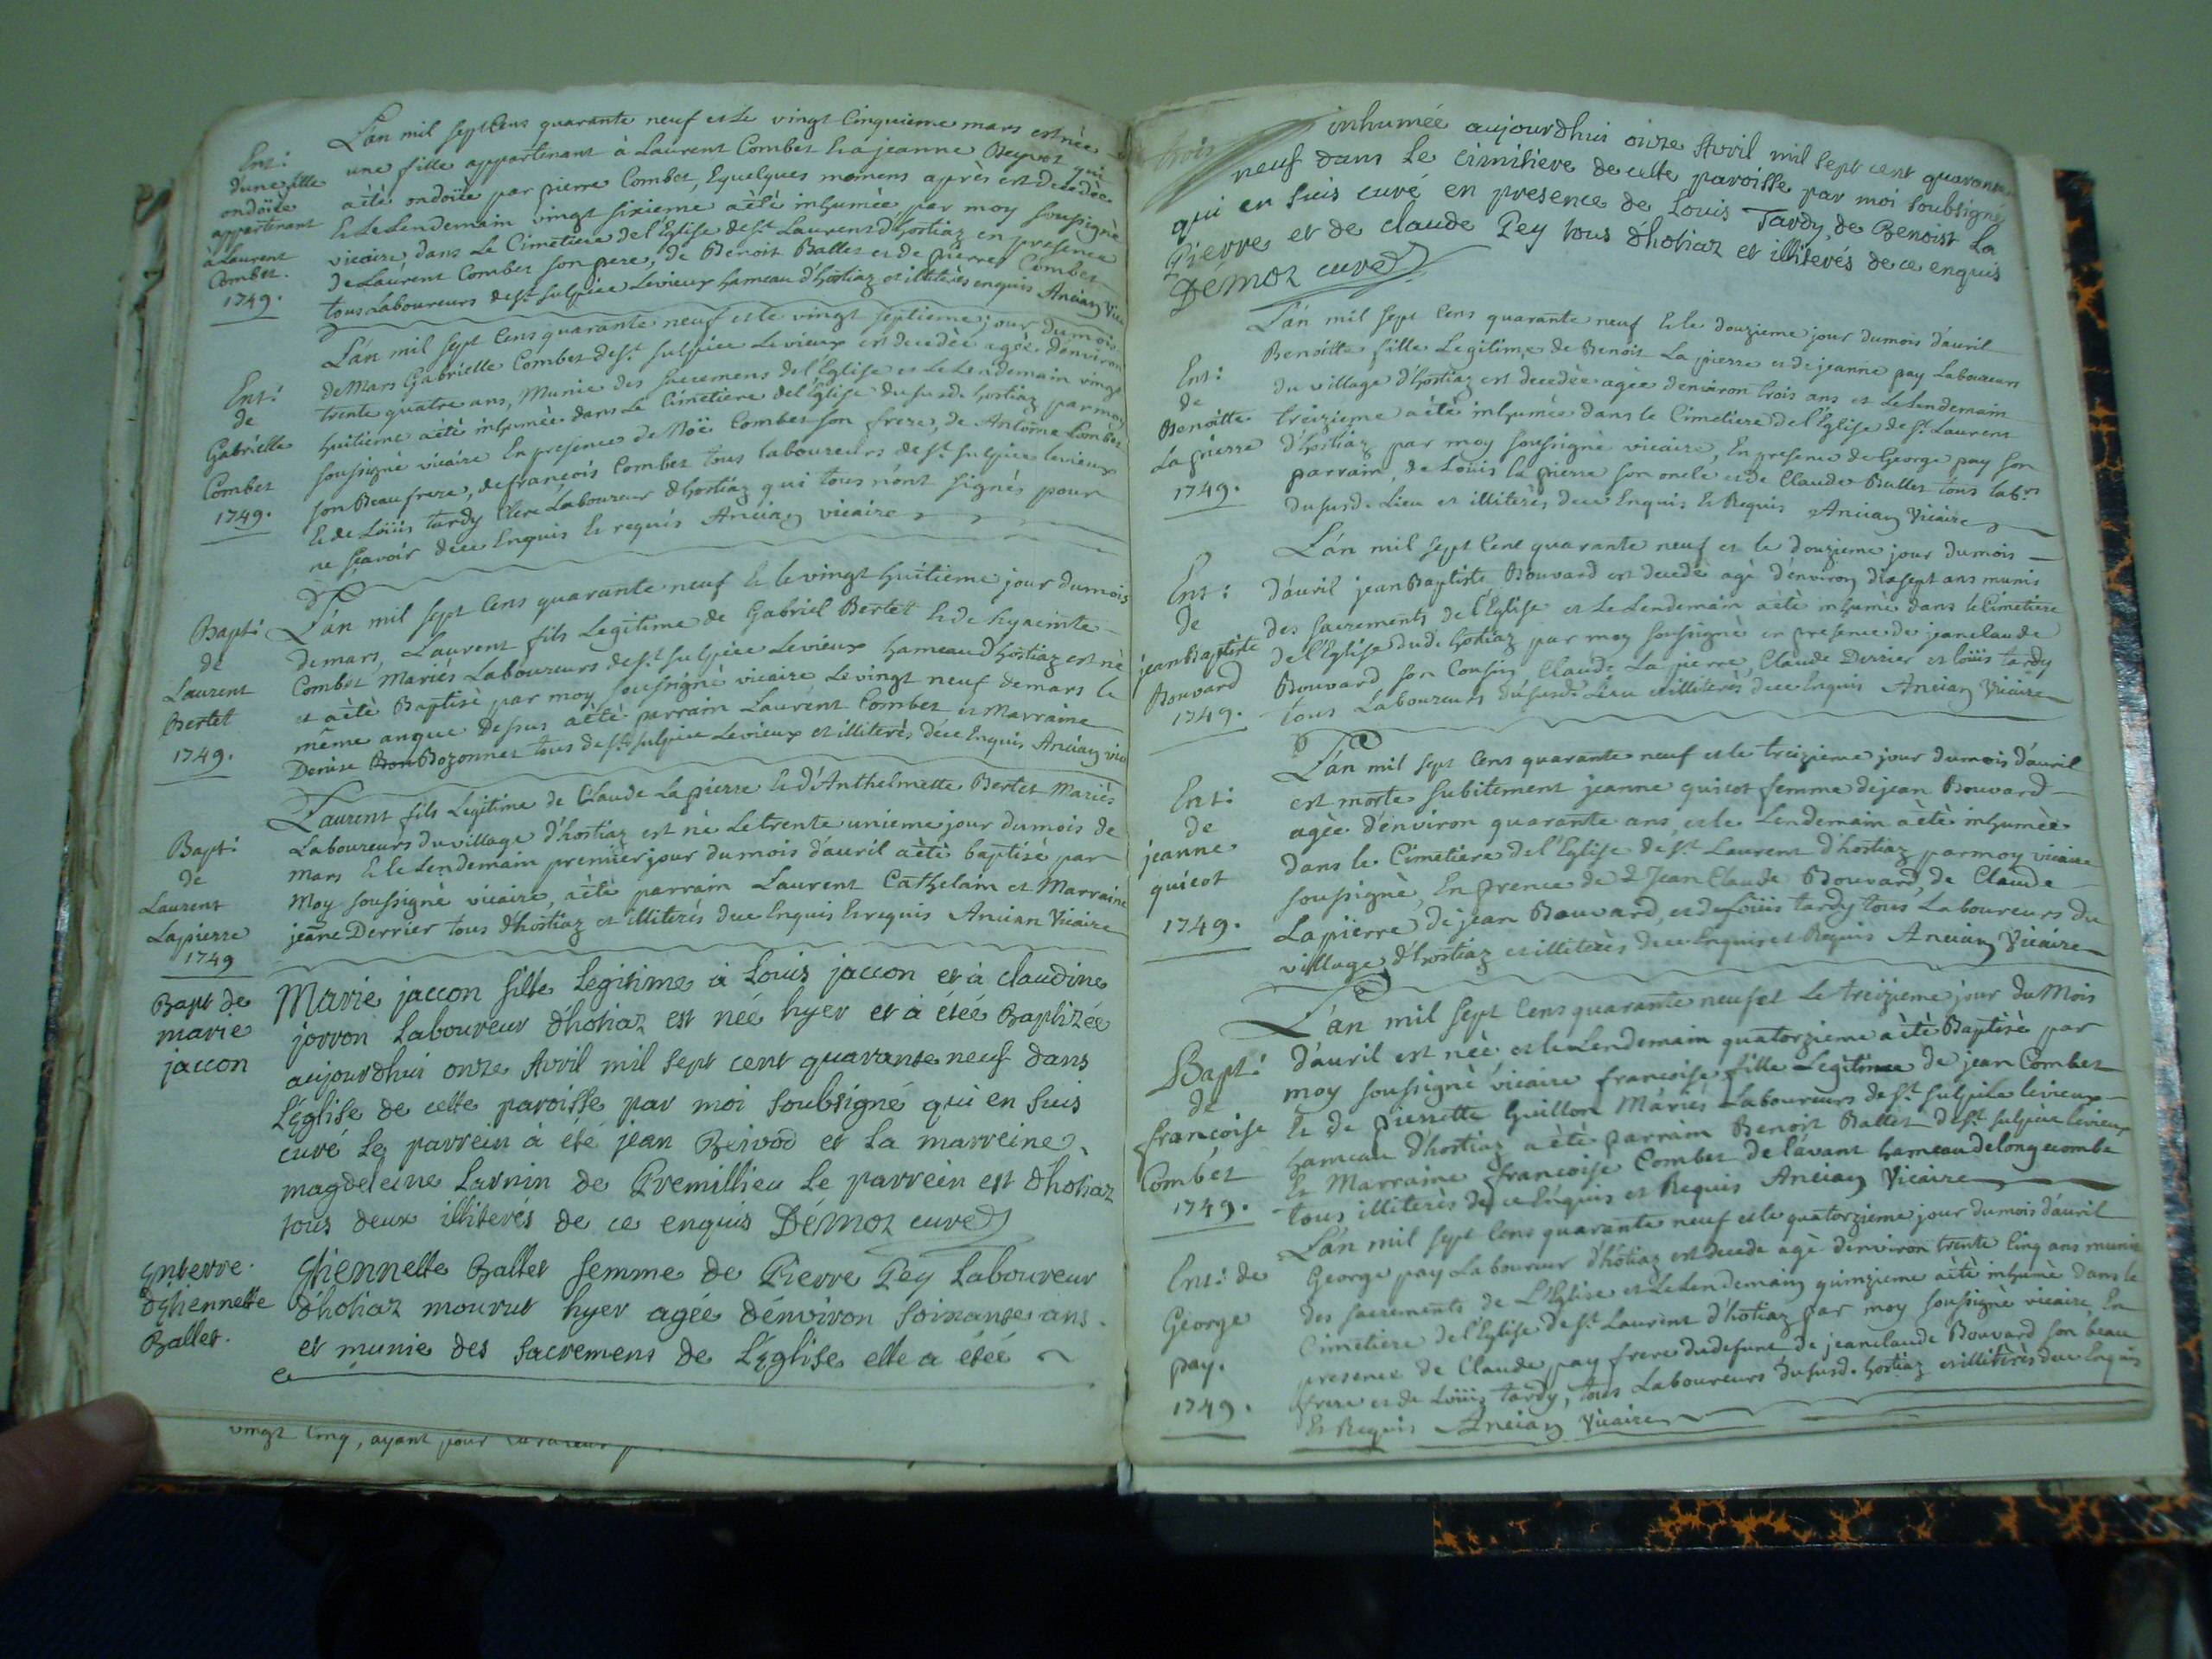 Ent:
d'une fille
ondoïée
appartenant
à Laurent
Combet.
1749.
L'an mil sept Cens quarante neuf et le vingt Cinquieme mars est née
une fille appartenant à Laurent Combet & a jeanne qui
a été ondoïée par pierre Combet, & quelques momens après est decedée
& Le Lendemain vingt sixieme a été inhumée par moy soussigné
vicaire, dans Le Cimetiere de l'Eglise de st Laurent d'hostiaz en presence
de Laurent Combet son pere, de Benoit Ballet et de pierre Combet
tous Laboureurs de st sulpice Levieux hameau d'hostiaz et illiterés enquis Ancian Vice
Ent:
de
Gabrielle
Combet
1749.
L'an mil sept Cens quarante neuf et le vingt septieme jour du mois
de Mars Gabrielle Combet de st sulpice Levieux est decedée agée d'environ
trente quatre ans, Munie des sacremens de l'Eglise et Le Lendemain vingt
huitieme a été inhumée dans Le Cimetiere de l'Eglise du susd. hostiaz par moy
soussigné vicaire En presence de Noë Combet son frere, de Antoine Combet
son Beaufrere, de françois Combet tous laboureurs de st sulpice levieux
& de Loüis tardy Clerc Laboureur d'hostiaz qui tous n'ont signés pour
ne sçavoir de ce Enquis & requis Ancian vicaire
Bapt:
de
Laurent
Bertet
1749.
L'an mil sept Cens quarante neuf & le vingt huitieme jour du mois
de mars, Laurent fils Legitime de Gabriel Bertet & de hyacinte
Combet Mariés Laboureurs de st sulpice Levieux hameau d'hostiaz est né
et a été Baptisé par moy soussigné vicaire Le vingt neuf de mars le
même an que Dessus a été parrain Laurent Combet et Marraine
Denise Bozonnet tous de st sulpice Levieux et illiterés de ce Enquis Ancian vic
Bapt:
de
Laurent
Lapierre
1749
Laurent fils Legitime de Claude Lapierre & d'Anthelmette Bertet Mariés
Laboureurs du village d'hostiaz est né Le trente unieme jour du mois de
mars & le Lendemain premier jour du mois d'auril a été baptisé par
Moy soussigné vicaire, a été parrain Laurent Cathelain et Marraine
jeanne Derrier tous d'hostiaz et illiterés de ce Enquis & requis Ancian Vicaire
Bapt de
marie
jaccon
Marie jaccon fille Legitime à Louis jaccon et à claudine
jorron Laboureur d'hotiaz est née hyer et à étée Baptizée
aujourdhui onze Avril mil sept cent quarante neuf dans
L'Eglise de cette paroisse par moi soubsigné qui en suis
curé Le parrein à été jean Beivod et La marreine
magdeleine Larnin de Premillieu Le parrein est d'hotiaz
tous deux illiterés de ce enquis Démoz curé
Enterre.
d'Ethiennette
Ballet.
Ethiennette Ballet femme de Pierre Pey Laboureur
d'hotiaz mourut hyer agée d'environ soixante ans.
et munie des sacremens de L'Eglise elle a étée
vingt Cinq, ayant pour
trois
inhumée aujourdhui onze Avril mil sept cent quarante
neuf dans Le cimitiere de cette paroisse par moi soubsigné
qui en suis curé en presence de Louis Tardy, de Benoist La
Pierre et de claude Pey tous d'hotiaz et illiterés de ce enquis
Démoz curé
Ent:
de
Benoitte
La pierre
1749.
L'an mil sept Cens quarante neuf & le douzieme jour du mois d'auril
Benoitte fille Legitime de Benoit La pierre et de jeanne pay Laboureurs
du village d'hostiaz est decedée agée d'environ trois ans et Le Lendemain
treizieme a été inhumée dans le Cimetiere de l'Eglise de st Laurent
d'hostiaz par moy soussigné vicaire, En presence de George pay son
parrain, de Loüis la pierre son oncle et de Claude Ballet tous labrs
du susd. Lieu et illiterés de ce Enquis & Requis Ancian Vicaire
Ent:
de
jean Baptiste
Bouvard
1749.
L'an mil sept Cent quarante neuf et le douzieme jour du mois
d'auril jean Baptiste Bouvard est decedé agé d'environ dixsept ans munis
des sacrements de l'Eglise et Le Lendemain a été inhumé dans le Cimetiere
de l'Eglise dud. hostiaz par moy soussigné en presence de jean claude
Bouvard son Cousin Claude La pierre, Claude Derrier et loüis tardy
tous Laboureurs du susd. Lieu et illiterés de ce Enquis Ancian Vicaire
Ent:
de
jeanne
quicot
1749.
L'an mil sept Cens quarante neuf et le treizieme jour du mois d'auril
est morte subitement jeanne quicot femme de jean Bouvard
agée d'environ quarante ans, et le Lendemain a été inhumée
dans le Cimetiere de l'Eglise de st Laurent d'hostiaz par moy vicaire
soussigné, En prence de Jean Claude Bouvard, de Claude
Lapierre de jean Bouvard, et de Loüis tardy tous Laboureurs du
village d'hostiaz et illiterés de ce Enquis et Requis Ancian Vicaire
Bapt:
de
francoise
Combet
1749.
L'an mil sept Cens quarante neuf et Le treizieme jour du Mois
d'auril est née et le Lendemain quatorzieme a été Baptisée par
moy soussigné vicaire francoise fille Legitime de jean Combet
& de Pierrette Guillon Mariés Laboureurs de st sulpice levieux
hameau d'hostiaz a été parrain Benoit Ballet de st sulpice levieux
& Marraine francoise Combet de l'avant hameau de longecombe
tous illiterés de ce Enquis et Requis Ancian Vicaire
Ent: de
George
pay.
1749.
L'an mil sept Cens quarante neuf et le quatorzieme jour du mois d'auril
George pay Laboureur d'hôtiaz est decede agé d'environ trente Cinq ans munie
des sacrements de L'Eglise et Le Lendemain quinzieme a été inhumé dans le
Cimetiere de l'Eglise de st Laurent d'hotiaz par moy soussigné vicaire, En
presence de Claude pay frere du defunt de jean claude Bouvard son beau
frere et de Loüis tardy, tous Laboureurs du susd. hostiaz et illiterés de ce Enquis
& Requis Ancian Vicaire